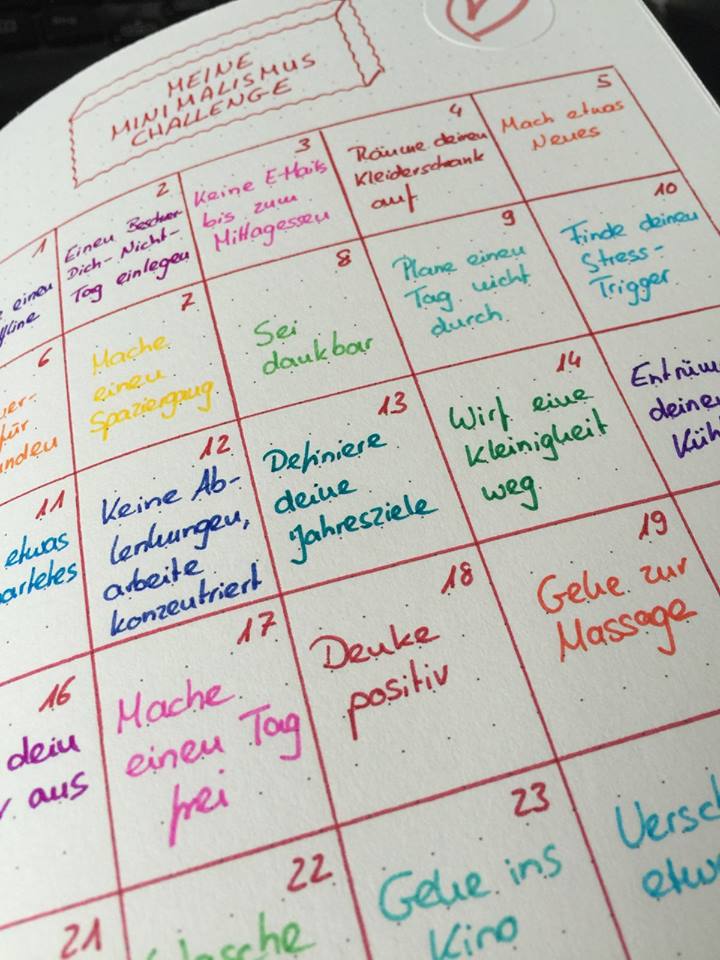 MEINE
MINIMALISMUS
CHALLENGE
1
einen
2
Einen Beschwer-
Dich-Nicht-
Tag einlegen
3
Keine E-Mails
bis zum
Mittagessen
4
Räume deinen
Kleiderschrank
auf
5
Mach etwas
Neues
6
für
7
Mache
einen
Spaziergang
8
Sei
dankbar
9
Plane einen
Tag nicht
durch
10
Finde deinen
Stress-
Trigger
11
etwas
12
Keine Ab-
lenkungen,
arbeite
konzentriert
13
Definiere
deine
Jahresziele
14
Wirf eine
Kleinigkeit
weg
16
dein
aus
17
Mache
einen Tag
frei
18
Denke
positiv
19
Gehe zur
Massage
21
22
23
Gehe ins
Kino